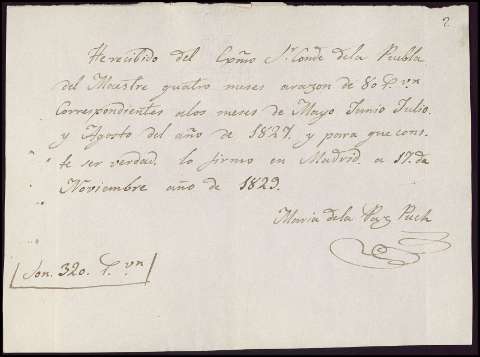 2
He recibido del Exmo Sr. Conde dela Puebla
del Maestre quatro meses arazon de 80 rs. vn
Correspondientes alos meses de Mayo Junio Julio
y Agosto del año de 1827. y para que cons-
te ser verdad lo firmo en Madrid a 17. de
Noviembre año de 1829.
Maria dela Paz Puch
Son. 320. rs. vn